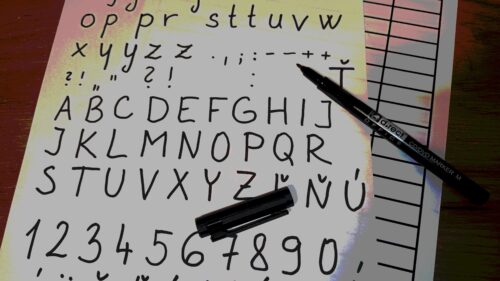 o p p r s t t u v w
x y y z z . , ; : - - + +
? ! " ? ! : Ť
A B C D E F G H I J
J K L M N O P Q R
S T U V X Y Z Ň Ú
1 2 3 4 5 6 7 8 9 0
CD/DVD MARKER M